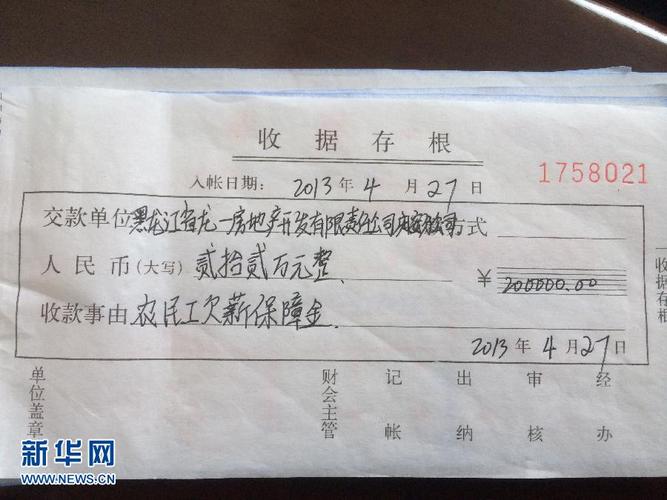 收据存根
1758021
入帐日期： 2013 年 4 月 27 日
交款单位 黑龙江省龙一房地产开发有限责任公司 方式
人民币（大写） 贰拾贰万元整 ￥ 200000.00
收款事由 农民工欠薪保障金
2013 年 4 月 27 日
收据存根
单位盖章 财会主管 记帐 出纳 审核 经办
新华网
WWW.NEWS.CN